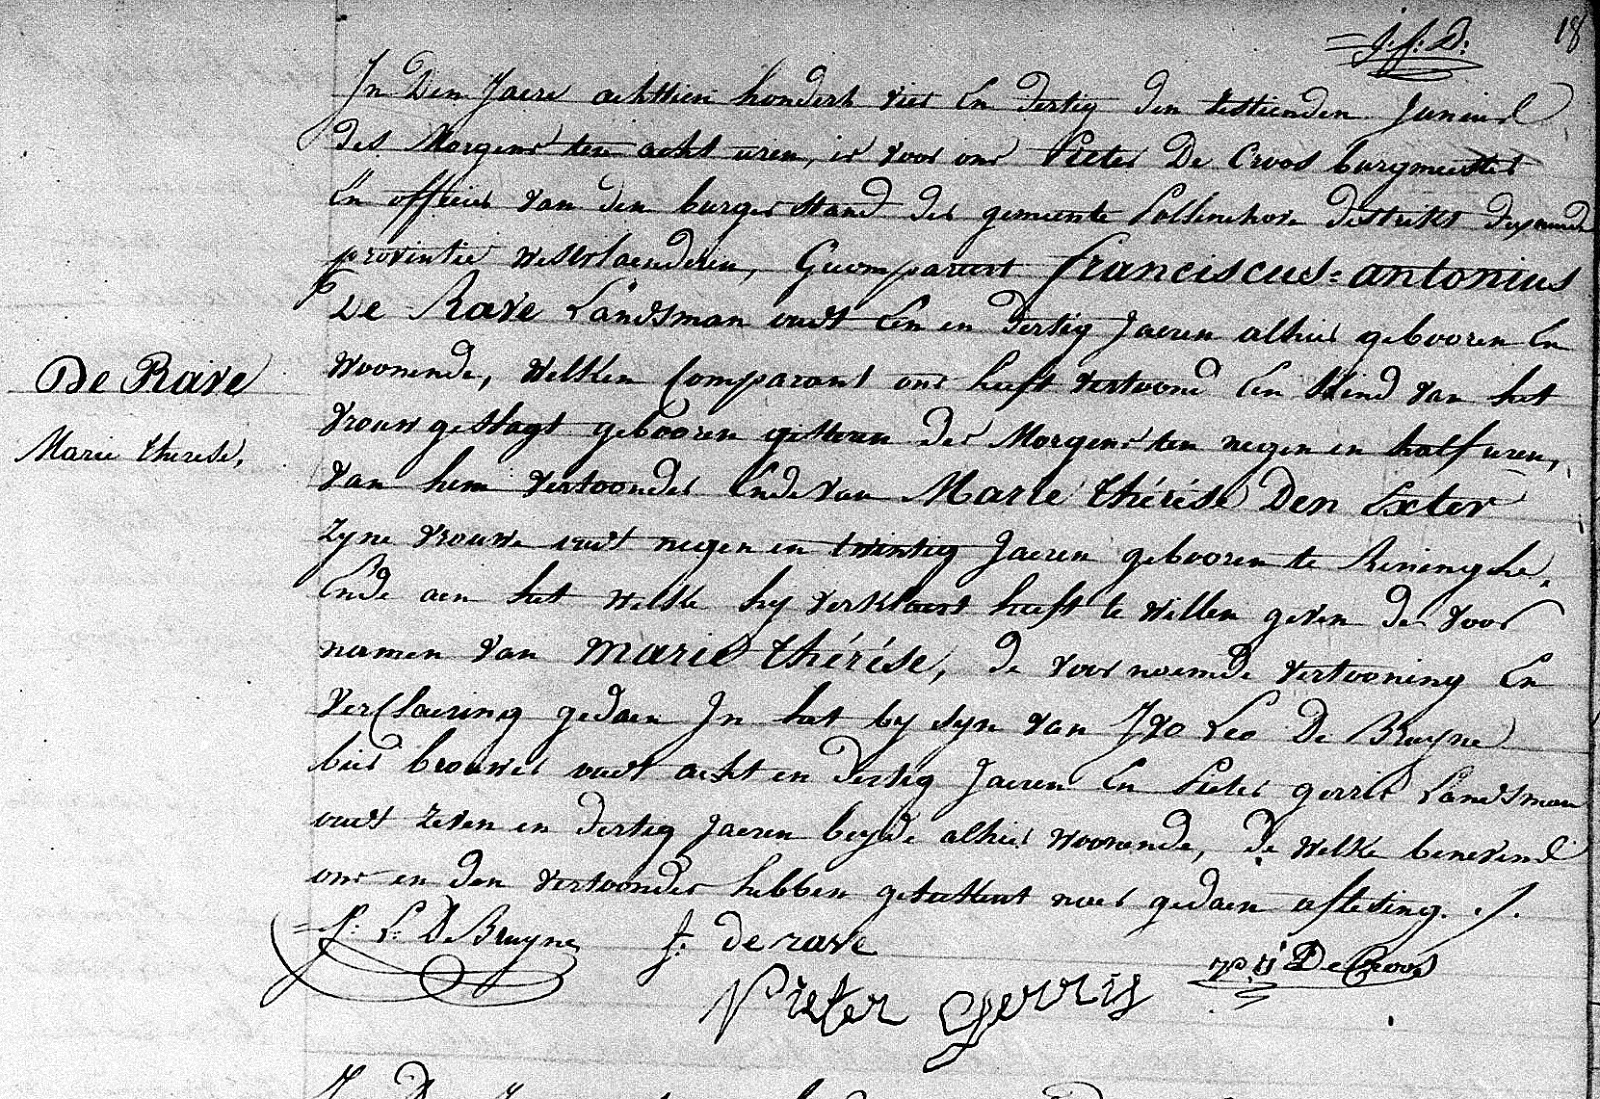 J: f: D:
18
In Den Jaere achttien hondert vier en dertig den sestienden Junius
des Morgens ten acht uren, is voor ons Pieter De Croos burgmeester
en officier van den burger stand der gemeente Pollinchove distrikt dixmude
provintie westvlaenderen, Gecompareert franciscus=antonius
De Rave Landsman oudt een en dertig Jaeren alhier gebooren en
woonende, welken Comparant ons heeft vertoond een kind van het
vrouw geslagt gebooren gisteren des Morgens ten negen en half uren,
van hem vertoonder ende van Marie thérése Den Exter
zyne vrouwe oudt negen en twintig Jaeren gebooren te Reninghe,
De Rave
Marie therese,
ende aen het welke hy verklaert heeft te willen geven de voor
namen van Marie thérése, de voornoemde vertooning en
verclaering gedaen In het by syn van Ivo Leo De Bruyne
bier brouwer oudt acht en dertig Jaeren en Pieter gerris Landsman
oudt zeven en dertig Jaeren beyde alhier woonende, de welke benevens
ons en den vertoonder hebben geteekent naer gedaen aflesing. ./.
J: L: De Bruyne f. de rave P. J De Croos
Pieter Gerris